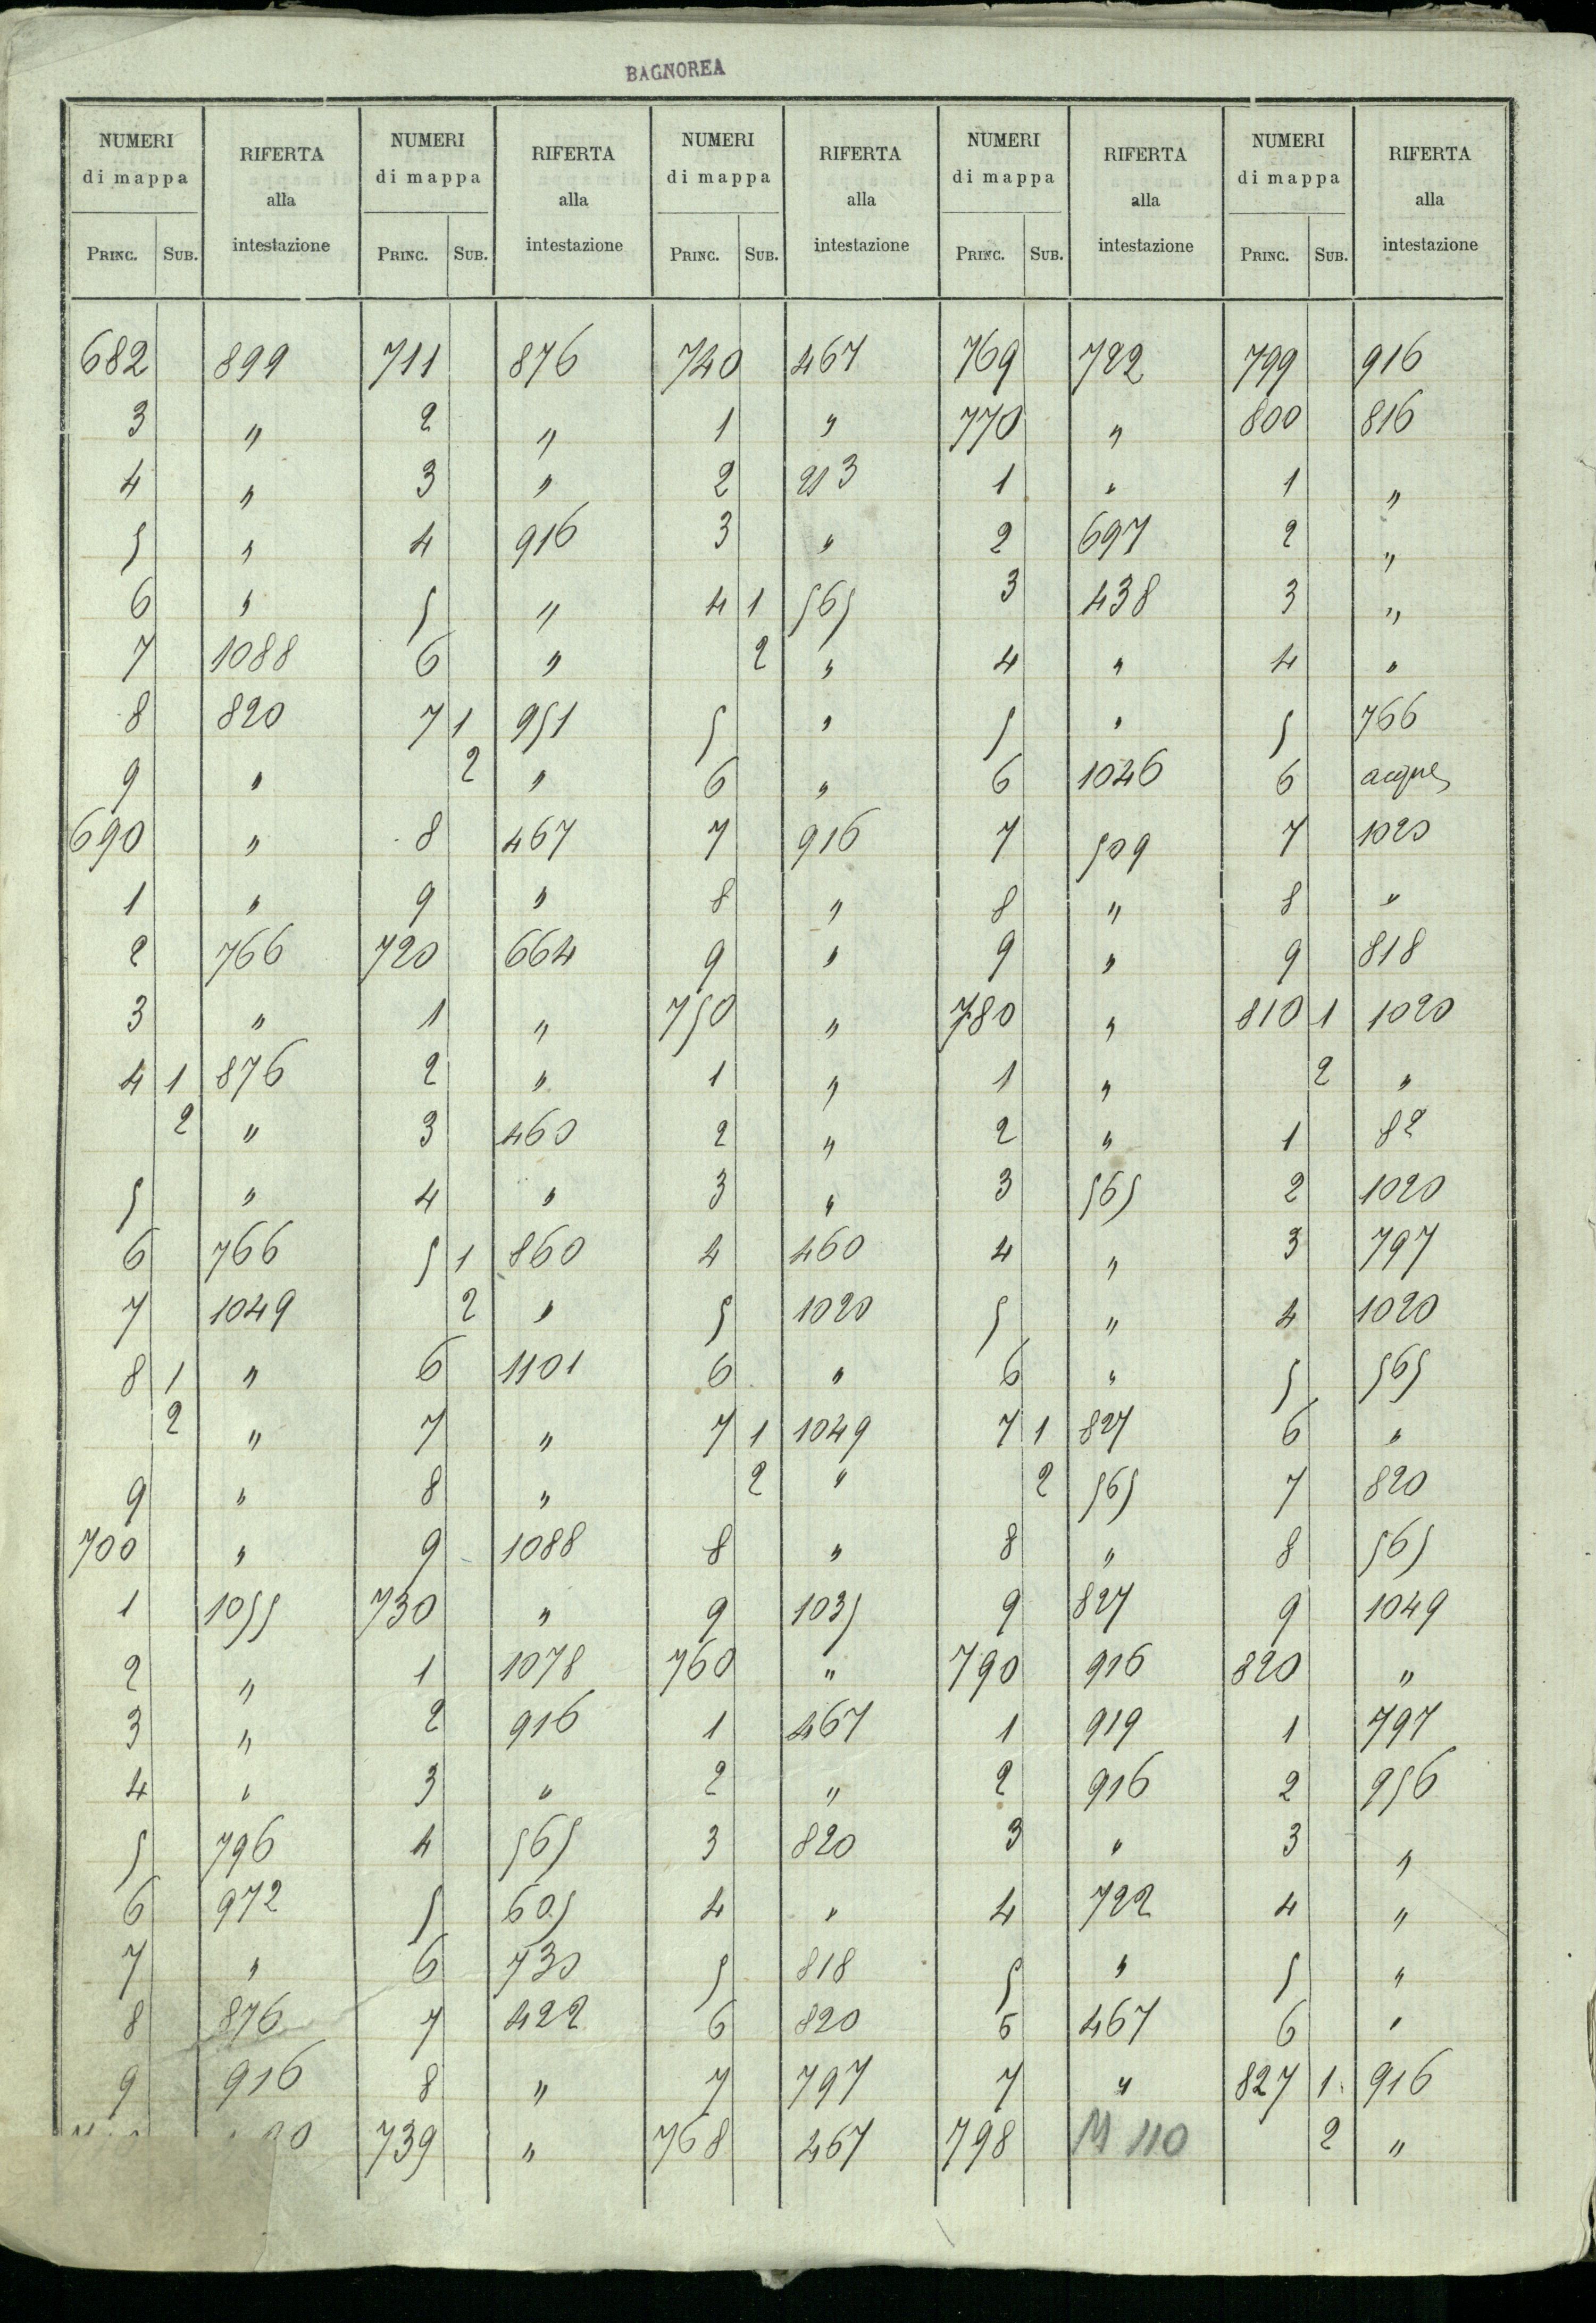 BAGNOREA
NUMERI di mappa RIFERTA alla intestazione NUMERI di mappa RIFERTA alla intestazione NUMERI di mappa RIFERTA alla intestazione NUMERI di mappa RIFERTA alla intestazione NUMERI di mappa RIFERTA alla intestazione
PRINC. SUB. PRINC. SUB. PRINC. SUB. PRINC. SUB. PRINC. SUB.
682 899 711 876 740 467 769 722 799 916
3 " 2 " 1 " 770 " 800 816
4 " 3 " 2 213 1 " 1 "
5 " 4 916 3 " 2 697 2 "
6 " 5 " 4 1 565 3 438 3 "
7 1088 6 " 2 " 4 " 4 "
8 820 7 1 951 5 " 5 " 5 766
9 " 2 " 6 " 6 1046 6 acque
690 " 8 467 7 916 7 509 7 1020
1 " 9 " 8 " 8 " 8 "
2 766 720 664 9 " 9 " 9 818
3 " 1 " 750 " 780 " 810 1 1020
4 1 876 2 " 1 " 1 " 2 "
2 " 3 460 2 " 2 " 1 82
5 " 4 " 3 " 3 565 2 1020
6 766 5 1 860 4 460 4 " 3 797
7 1049 2 " 5 1020 5 " 4 1020
8 1 " 6 1101 6 " 6 " 5 565
2 " 7 " 7 1 1049 7 1 827 6 "
9 " 8 " 2 " 2 565 7 820
700 " 9 1088 8 " 8 " 8 565
1 1055 730 " 9 1035 9 827 9 1049
2 " 1 1078 760 " 790 916 820 "
3 " 2 916 1 467 1 919 1 797
4 " 3 " 2 " 2 916 2 956
5 796 4 565 3 820 3 " 3 "
6 972 5 605 4 " 4 722 4 "
7 " 6 730 5 818 5 " 5 "
8 876 7 422 6 820 6 467 6 "
9 916 8 " 7 797 7 " 827 1 916
739 " 768 467 798 M 110 2 "